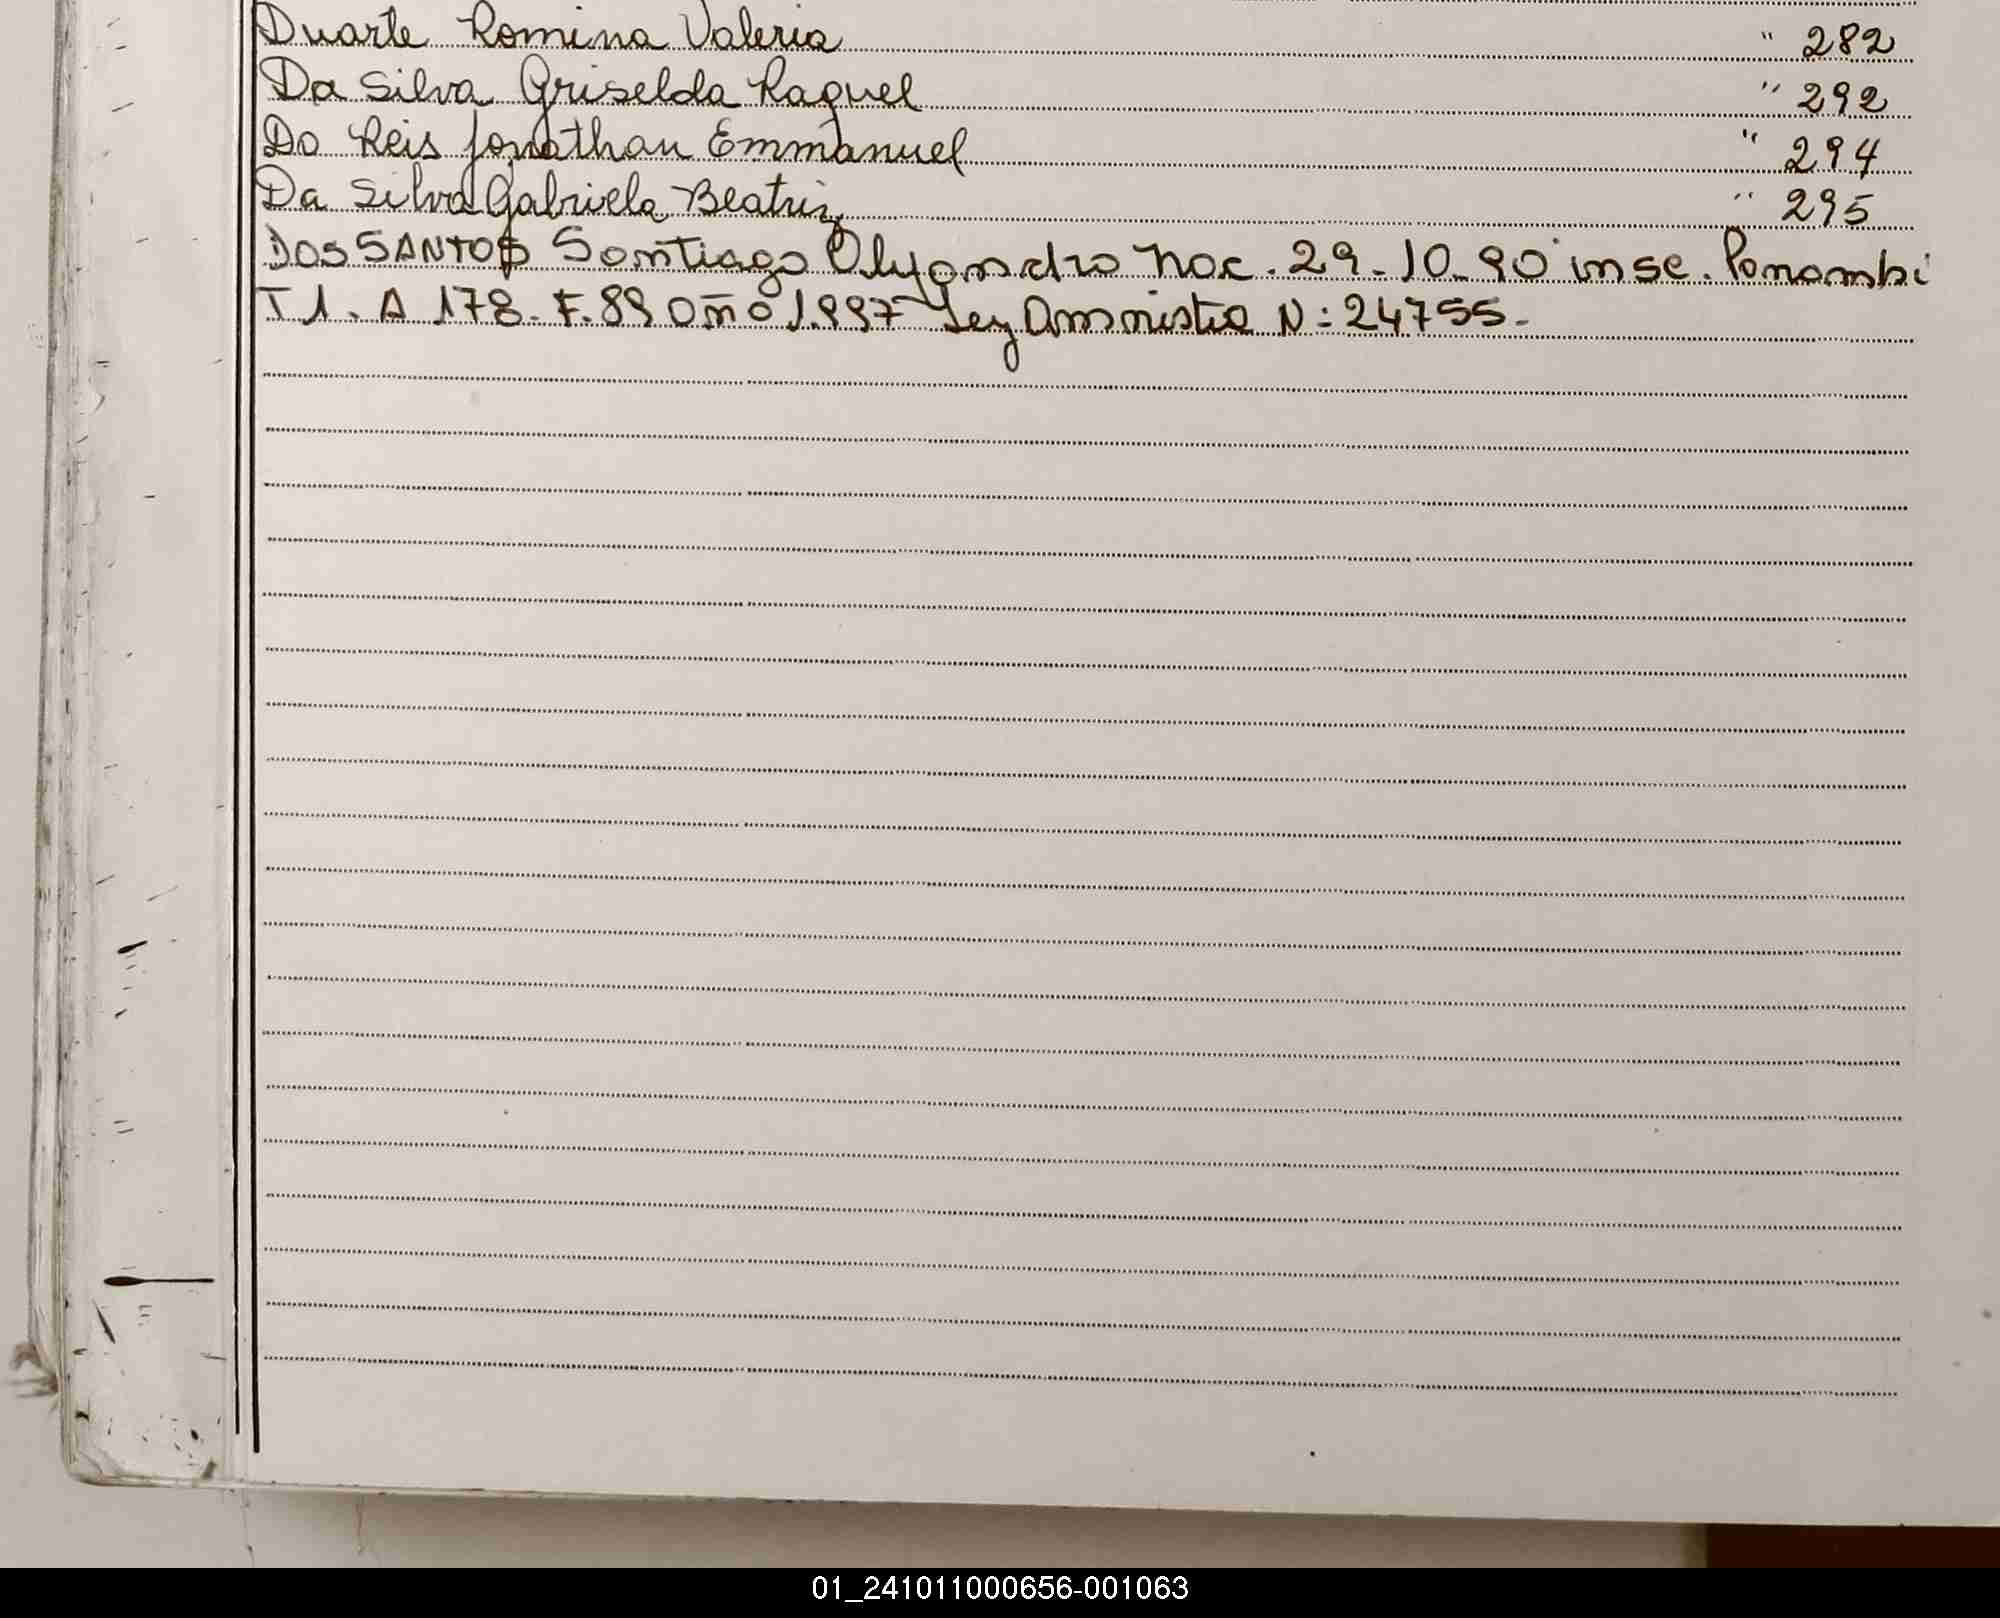 Duarte Romina Valeria " 282
Da Silva Griselda Raquel " 292
Do Reis Jonathan Emmanuel " 294
Da Silva Gabriela Beatriz " 295
DOS SANTOS Santiago Olyandro Nac. 29-10-90 insc. Panambi
T 1. A 178. F. 89 año 1.997 Ley Amnistia N: 24755.
01_241011000656-001063